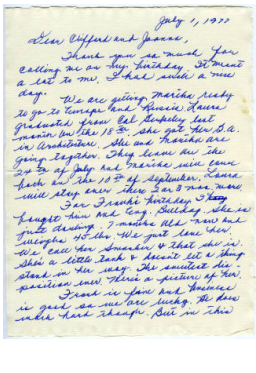 July 1, 1977
Dear Clifford and Joanna,
Thank you so much for
calling me on my birthday. It meant
a lot to me. I had such a nice
day.
We are getting Marsha ready
to go to Europe and Russia. Laura
graduated from Cal Berkeley last
month on the 18th. She got her B.A.
in Architecture. She and Marsha are
going together. They leave here the
24th of July and Marsha will come
back on the 10th of September. Laura
will stay over there for 3 mos. more.
For Frank's birthday I
bought him an Eng. Bulldog. She is
just darling. 7 months old now and
weighs 45 lbs. We just love her.
We call her Smasher & that she is.
She's a little tank & doesn't let a thing
stand in her way. The sweetest dis-
position ever. Here's a picture of her.
Frank is fine and business
is good so we are lucky. He does
work hard though. But in this